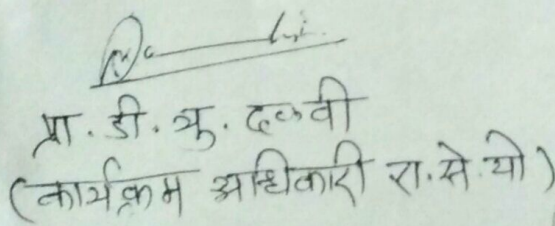 प्रा. डी. यु. दळवी
(कार्यक्रम अधिकारी रा.से.यो)